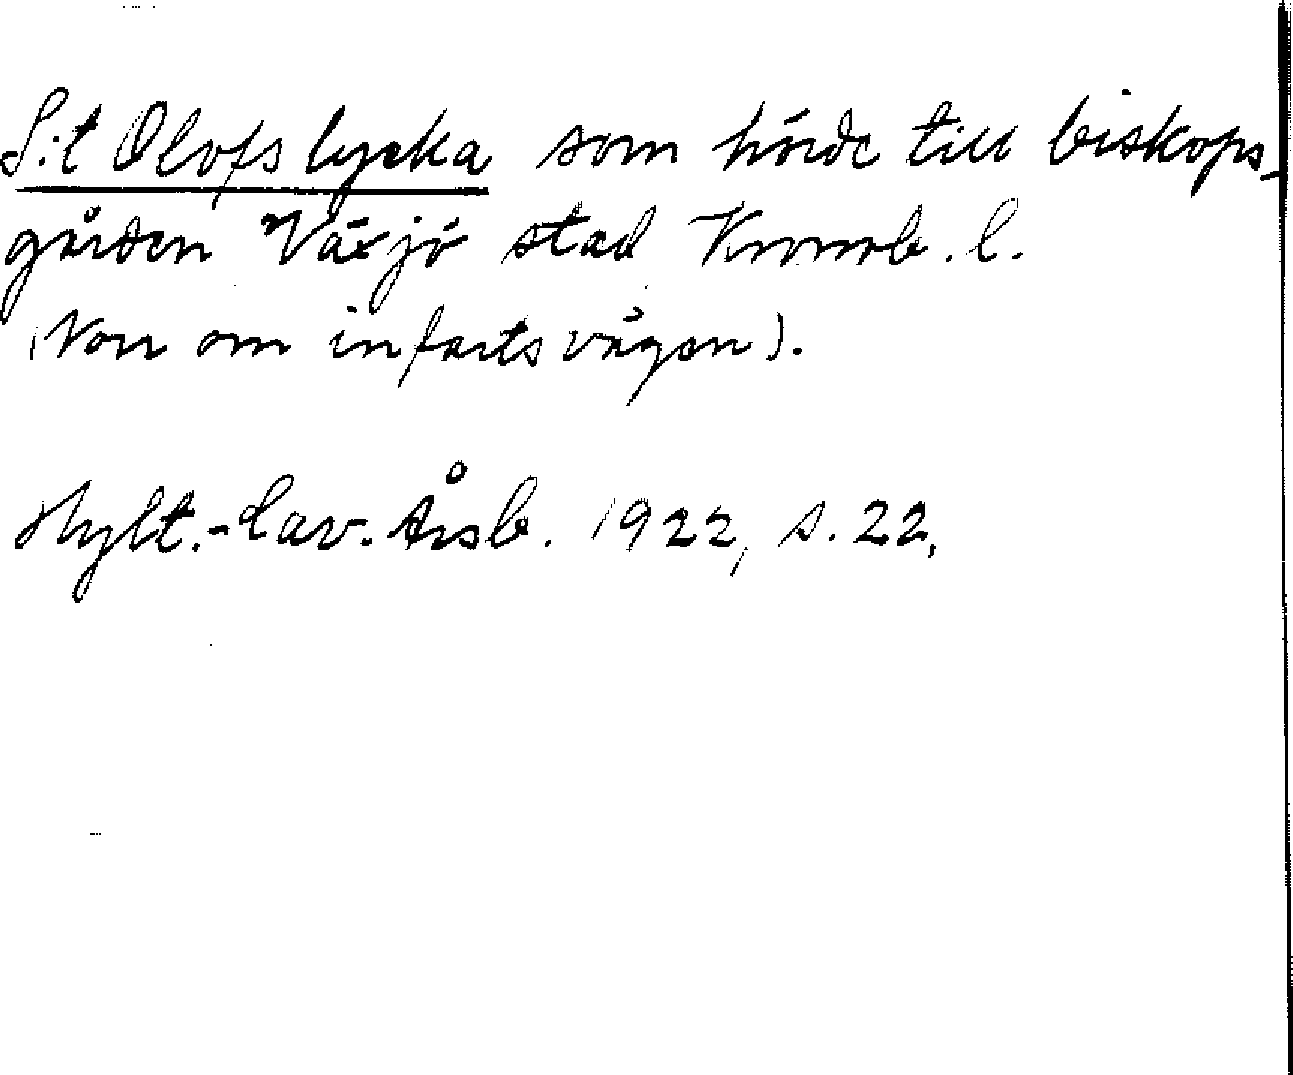 S:t Olofs lycka som hörde till biskops-
gården Växjö stad Kronob. l.
(Norr om infartsvägen).
Hylt.-Cav. Årsb. 1922, s. 22.